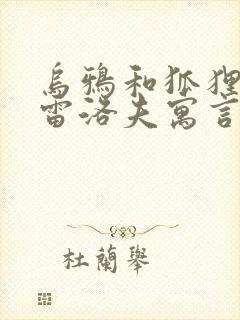 烏鴉和狐狸
雷洛夫寓言
杜蘭舉